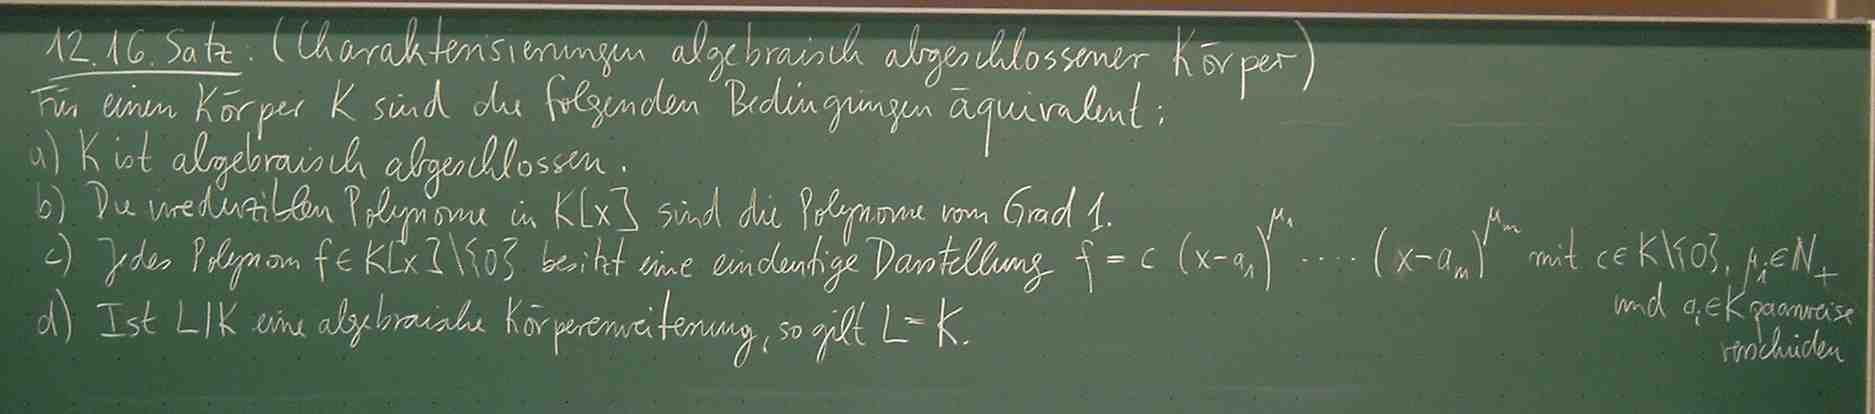 12.16. Satz: (Charakterisierungen algebraisch abgeschlossener Körper)
Für einen Körper K sind die folgenden Bedingungen äquivalent:
a) K ist algebraisch abgeschlossen.
b) Die irreduziblen Polynome in K[x] sind die Polynome vom Grad 1.
c) Jedes Polynom f ∈ K[x]\{0} besitzt eine eindeutige Darstellung f = c (x-a₁)^μ₁ ···· (x-aₘ)^μₘ mit c ∈ K\{0}, μᵢ ∈ N₊
und aᵢ ∈ K paarweise
verschieden
d) Ist L|K eine algebraische Körpererweiterung, so gilt L = K.